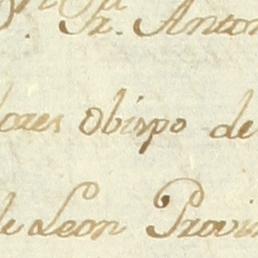 Fr. Anton
dores Obispo de
de Leon Provin